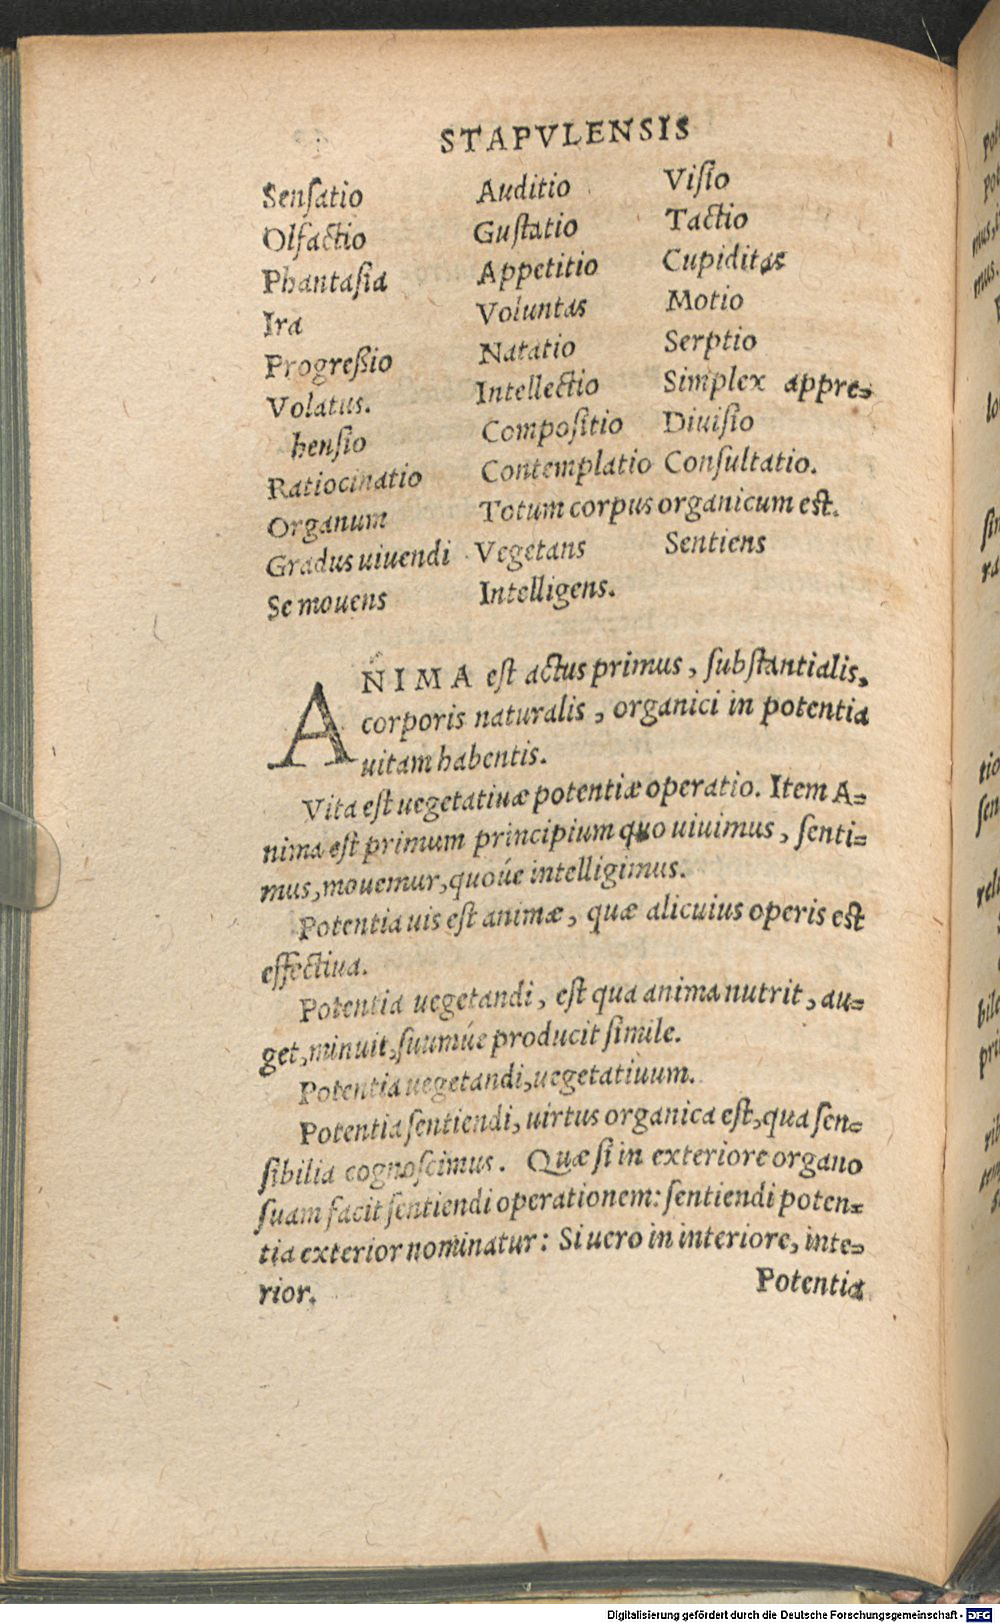 STAPVLENSIS
Senſatio Auditio Viſio
Olfactio Guſtatio Tactio
Phantaſia Appetitio Cupiditas
Ira Voluntas Motio
Progreßio Natatio Serptio
Volatus. Intellectio Simplex appre-
henſio Compoſitio Diuiſio
Ratiocinatio Contemplatio Conſultatio.
Organum Totum corpus organicum est.
Gradus uiuendi Vegetans Sentiens
Se mouens Intelligens.
ANIMA eſt actus primus, ſubſtantialis,
corporis naturalis, organici in potentia
uitam habentis.
Vita eſt uegetatiuæ potentiæ operatio. Item A-
nima eſt primum principium quo uiuimus, ſenti-
mus, mouemur, quoúe intelligimus.
Potentia uis eſt animæ, quæ alicuius operis est
effectiua.
Potentia uegetandi, eſt qua anima nutrit, au-
get, minuit, ſuumúe producit ſimile.
Potentia uegetandi, uegetatiuum.
Potentia ſentiendi, uirtus organica eſt, qua ſen-
ſibilia cognoſcimus. Quæ ſi in exteriore organo
ſuam facit ſentiendi operationem: ſentiendi poten-
tia exterior nominatur: Si uero in interiore, inte-
rior. Potentia
Digitalisierung gefördert durch die Deutsche Forschungsgemeinschaft - DFG